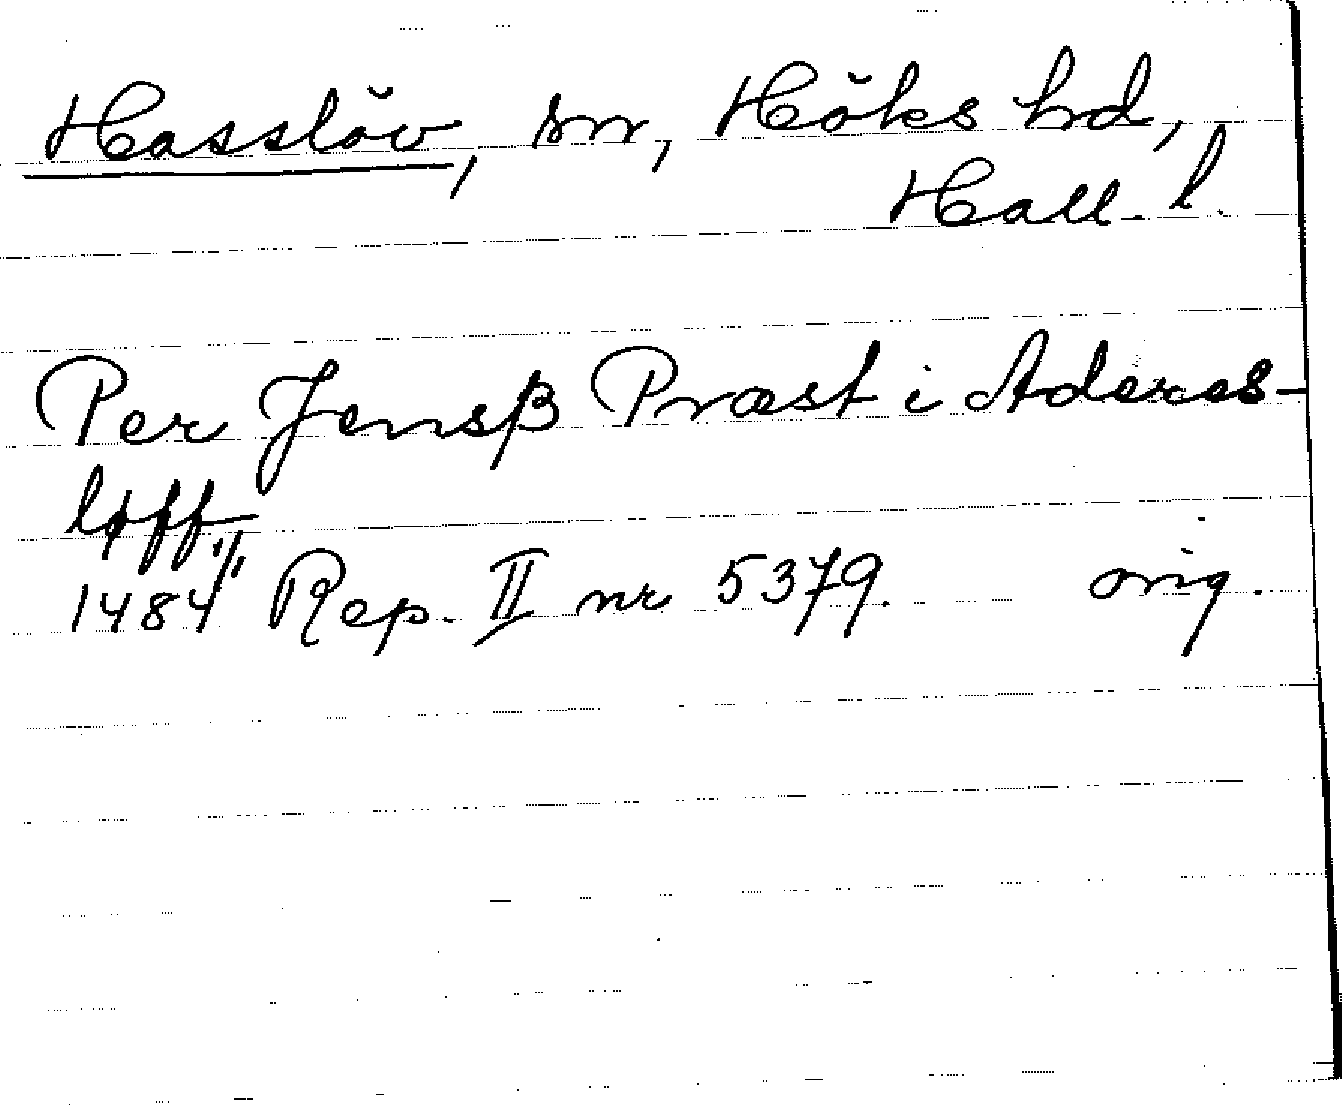 Hasslöv, sn, Höks hd,
Hall. l.
Per Jensβ Præst i Aderes-
løff,
1484 Rep. II nr 5379. orig.